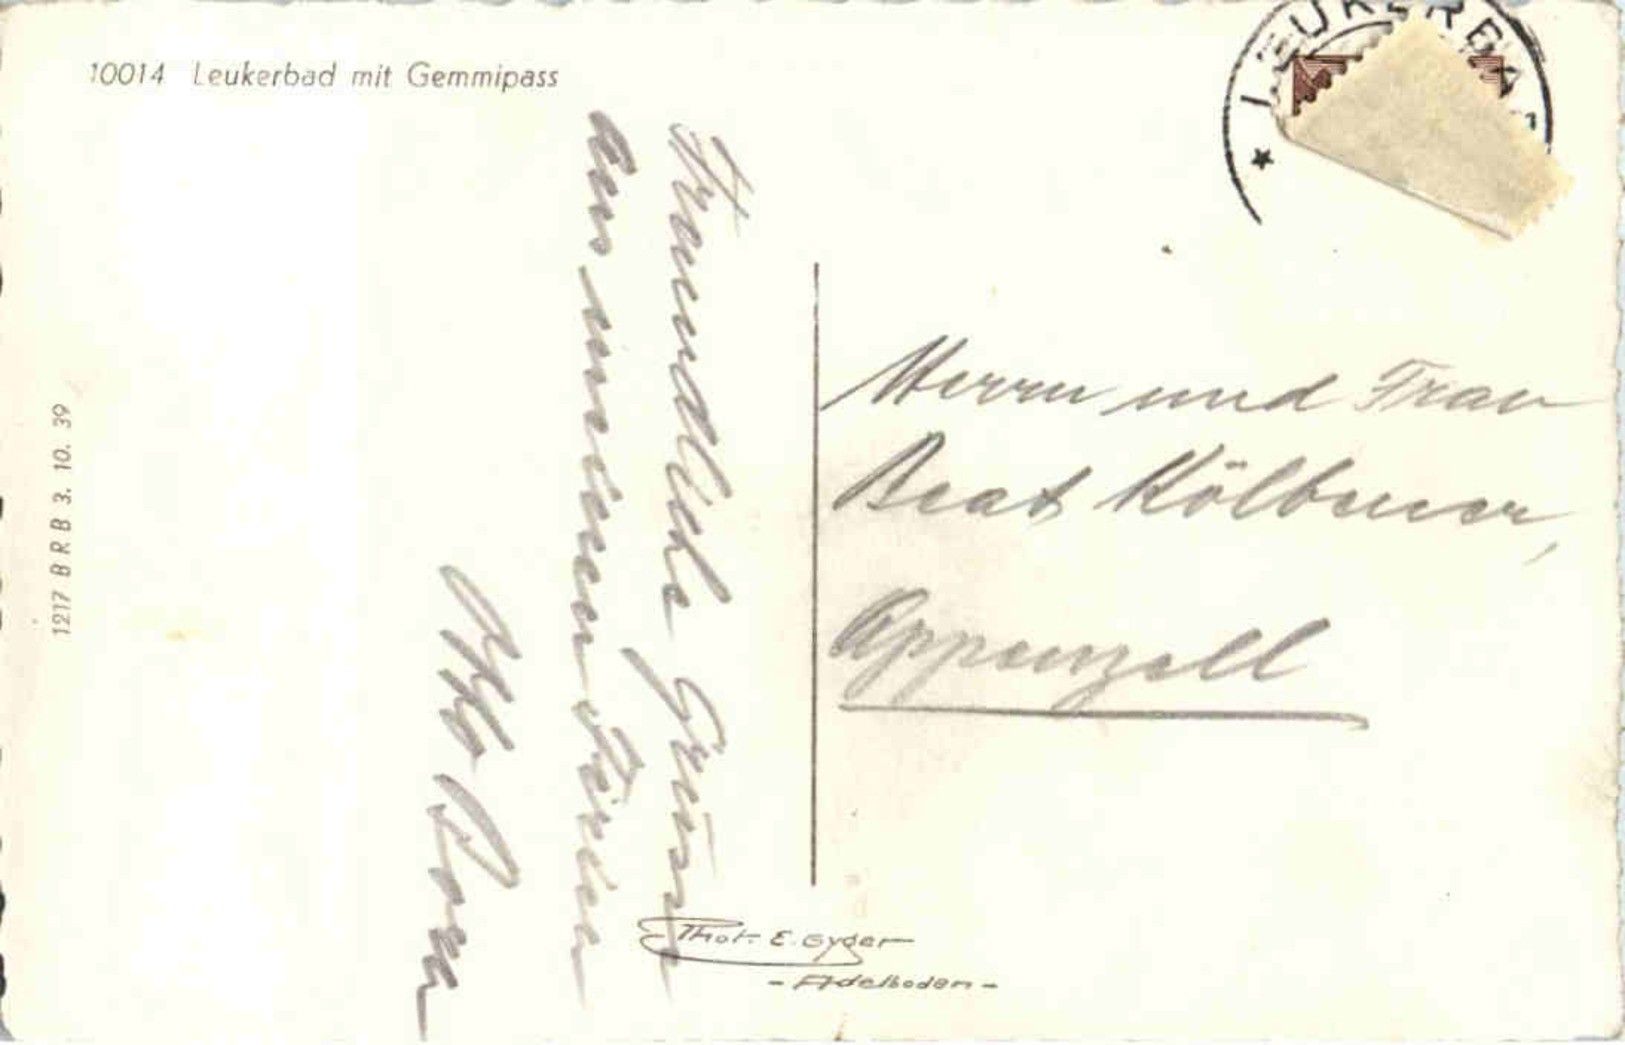 10014 Leukerbad mit Gemmipass
LEUKERBAD
Freundliche Grüsse
aus meinen Ferien
Otto Dorig
Herrn und Frau
Beat Kölbener,
Appenzell
Phot. E. Gyger
- Adelboden -
1217 B R B 3. 10. 39